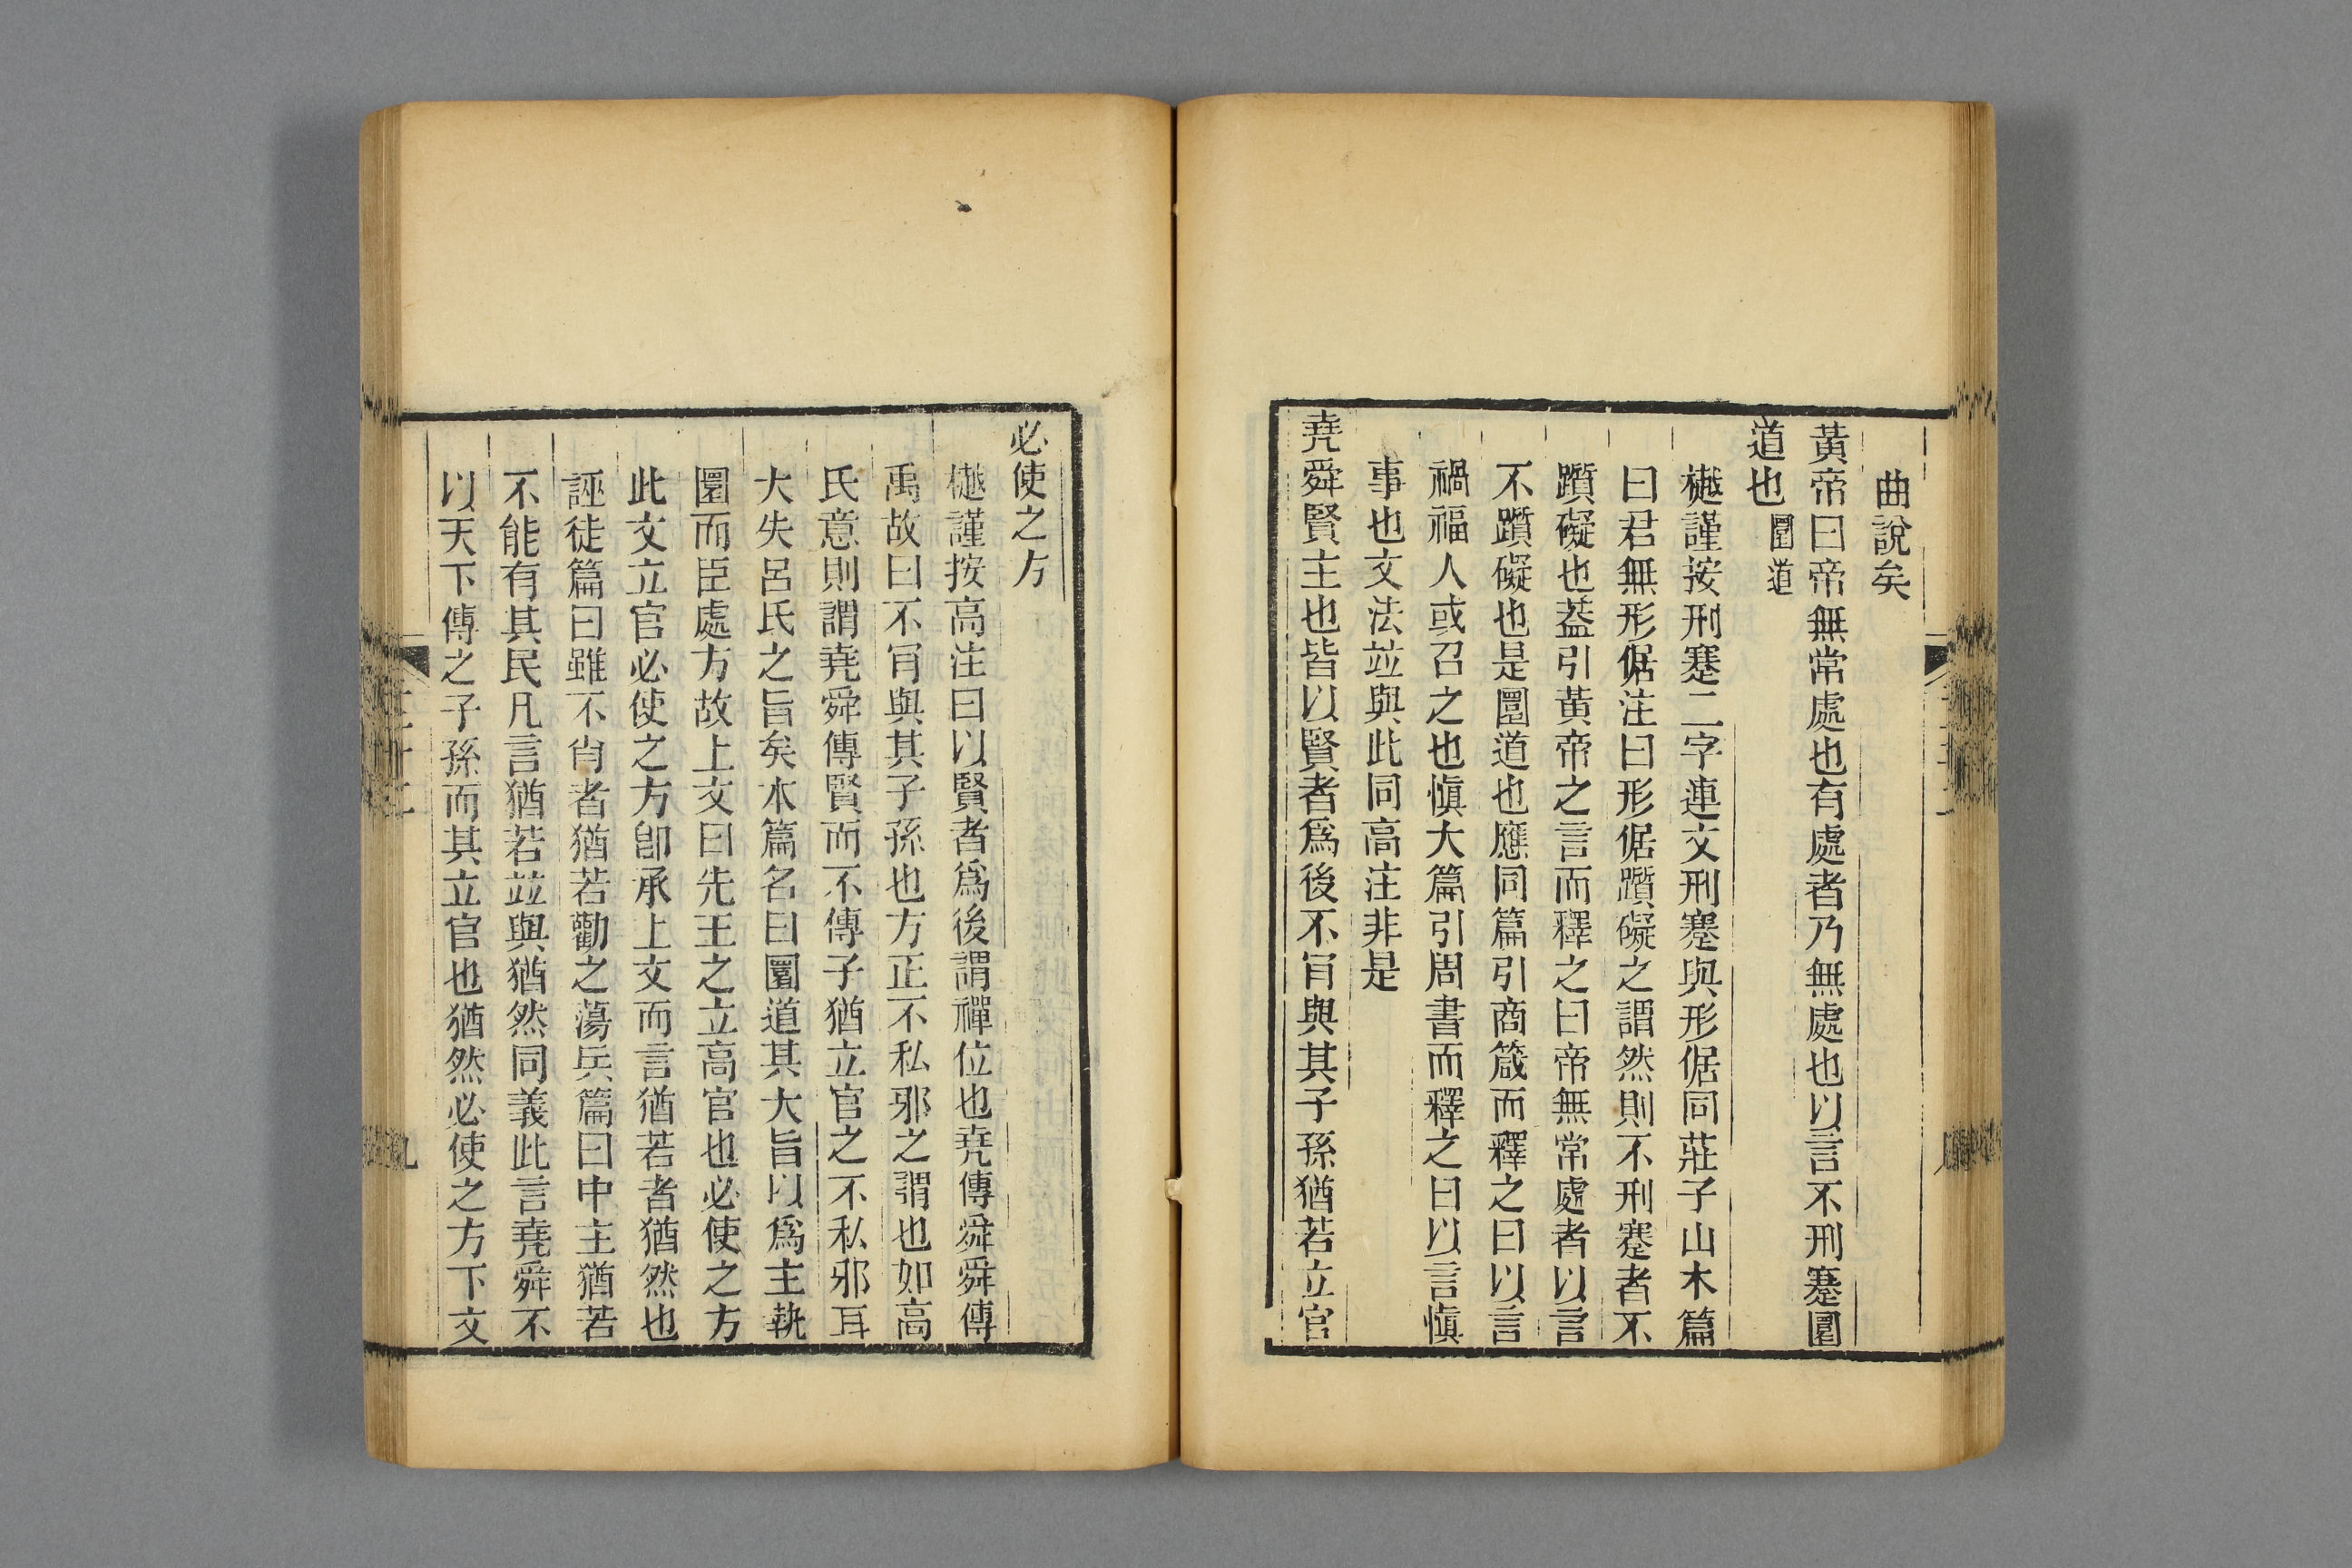 曲說矣
黃帝曰帝無常處也有處者乃無處也以言不刑蹇圜
道也圜道
樾謹按刑蹇二字連文刑蹇與形倨同莊子山木篇
曰君無形倨注曰形倨躓礙之謂然則不刑蹇者不
躓礙也葢引黃帝之言而釋之曰帝無常處者以言
不躓礙也是圜道也應同篇引商箴而釋之曰以言
禍福人或召之也愼大篇引周書而釋之曰以言愼
事也文法竝與此同高注非是
堯舜賢主也皆以賢者爲後不肎與其子孫猶若立官
必使之方
樾謹按高注曰以賢者爲後謂禪位也堯傳舜舜傳
禹故曰不肎與其子孫也方正不私邪之謂也如高
氏意則謂堯舜傳賢而不傳子猶立官之不私邪耳
大失呂氏之旨矣本篇名曰圜道其大旨以爲主執
圜而臣處方故上文曰先王之立高官也必使之方
此文立官必使之方卽承上文而言猶若者猶然也
誣徒篇曰雖不肯者猶若勸之蕩兵篇曰中主猶若
不能有其民凡言猶若竝與猶然同義此言堯舜不
以天下傳之子孫而其立官也猶然必使之方下文
二十二
九